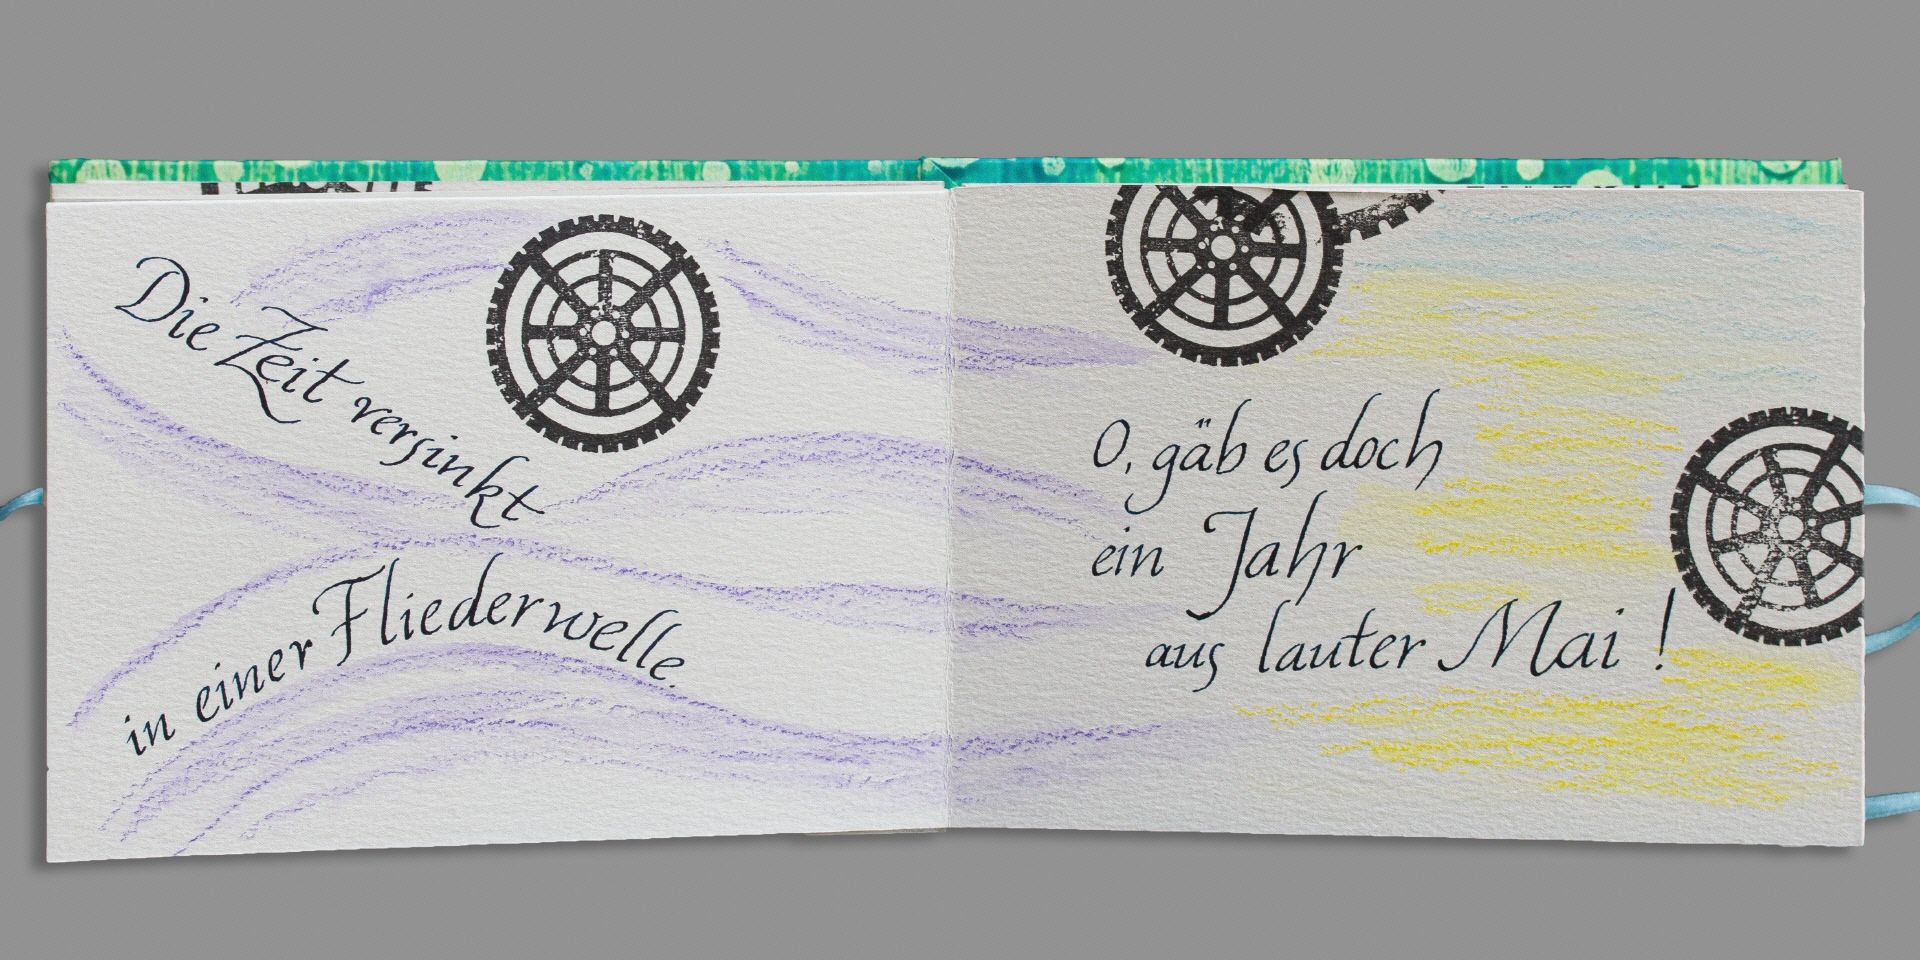 Die Zeit versinkt
in einer Fliederwelle.
O, gäb es doch
ein Jahr
aus lauter Mai!